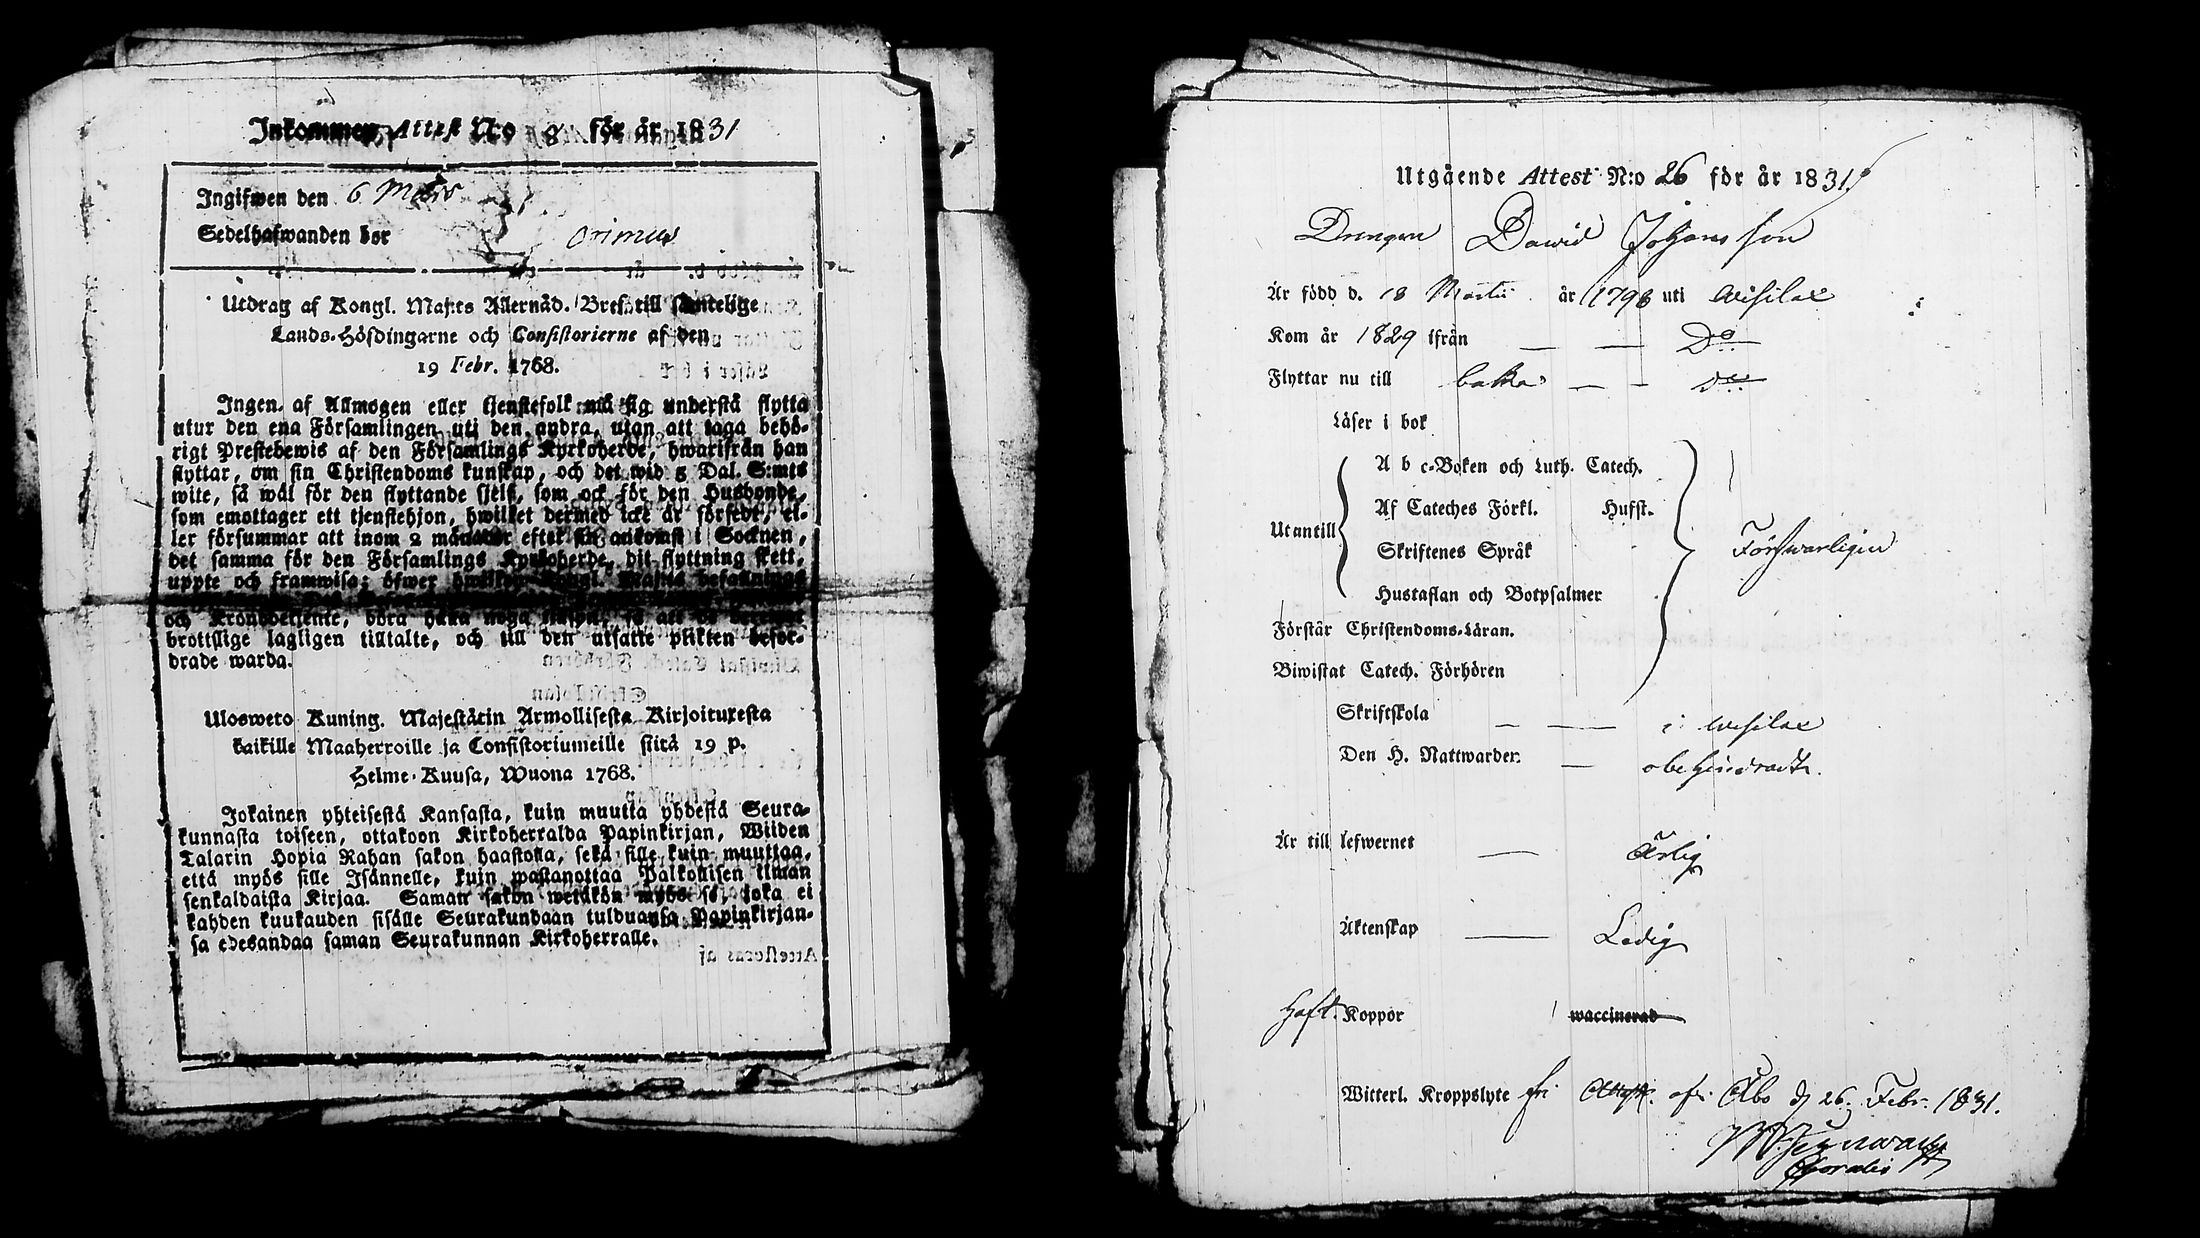 Inkommen Attest N:o 8 för år 1831
Ingifwen den 6 Mars
Sedelhafwanden bor Orimus
Utdrag af Kongl. Maj:ts Allernåd. Bref till samtelige
Lands-Höfdingarne och Consistorierne af den
19 Febr. 1768.
Ingen af Allmogen eller tjenstefolk må sig understå flytta
utur den ena Församlingen uti den andra, utan att taga behö-
rigt Prestebewis af den Församlings Kyrkoherde, hwarifrån han
flyttar, om sin Christendoms kunskap, och det wid 5 Dal. S:mts
wite, så wäl för den flyttande sjelf, som ock för den Husbonde,
som emottager ett tjenstehjon, hwilket dermed icke är försedt, el-
ler försummar att inom 2 månader efter sin ankomst i Socknen,
det samma för den Församlings Kyrkoherde, dit flyttning skett,
uppte och framwisa; öfwer hwilket Kongl. Maj:ts befallnings
och Kronobetjente, böra hafwa noga
brottslige lagligen tilltalte, och till den utsatte plikten befor-
drade warda.
Ulosweto Kuning. Majestätin Armollisesta Kirjoituxesta
kaikille Maaherroille ja Consistoriumeille siitä 19 p.
Helme-Kuusa, Wuona 1768.
Jokainen yhteisestä Kansasta, kuin muutta yhdestä Seura-
kunnasta toiseen, ottakoon Kirkoherralda Papinkirjan, Wiiden
Talarin Hopia Rahan sakon haastolla, sekä sille kuin muuttaa,
että myös sille Isännelle, kuin wastanottaa Palkollisen ilman
senkaldaista Kirjaa. Saman sakon wetäkön myös se, joka ei
kahden kuukauden sisälle Seurakundaan tulduansa Papinkirjan-
sa edesandaa saman Seurakunnan Kirkoherralle.
Utgående Attest N:o 26 för år 1831
Drengen Dawid Johansson
Är född d. 18 Martii år 1798 uti Wesilax
Kom år 1829 ifrån — — Do
Flyttar nu till baka — — Do
Läser i bok
A b c-Boken och Luth. Catech.
Af Cateches Förkl. Husst.
Utantill
Skriftenes Språk
Försvarligen
Hustaflan och Botpsalmer
Förstår Christendoms-Läran.
Biwistat Catech. Förhören
Skriftskola — — i Wesilax
Den H. Nattwarden — obehindradt.
Är till lefwernet — Ärlig
Äktenskap — Ledig
Haft Koppor waccinerad
Witterl. Kroppslyte fri Attest. af Åbo d 26 Febr. 1831.